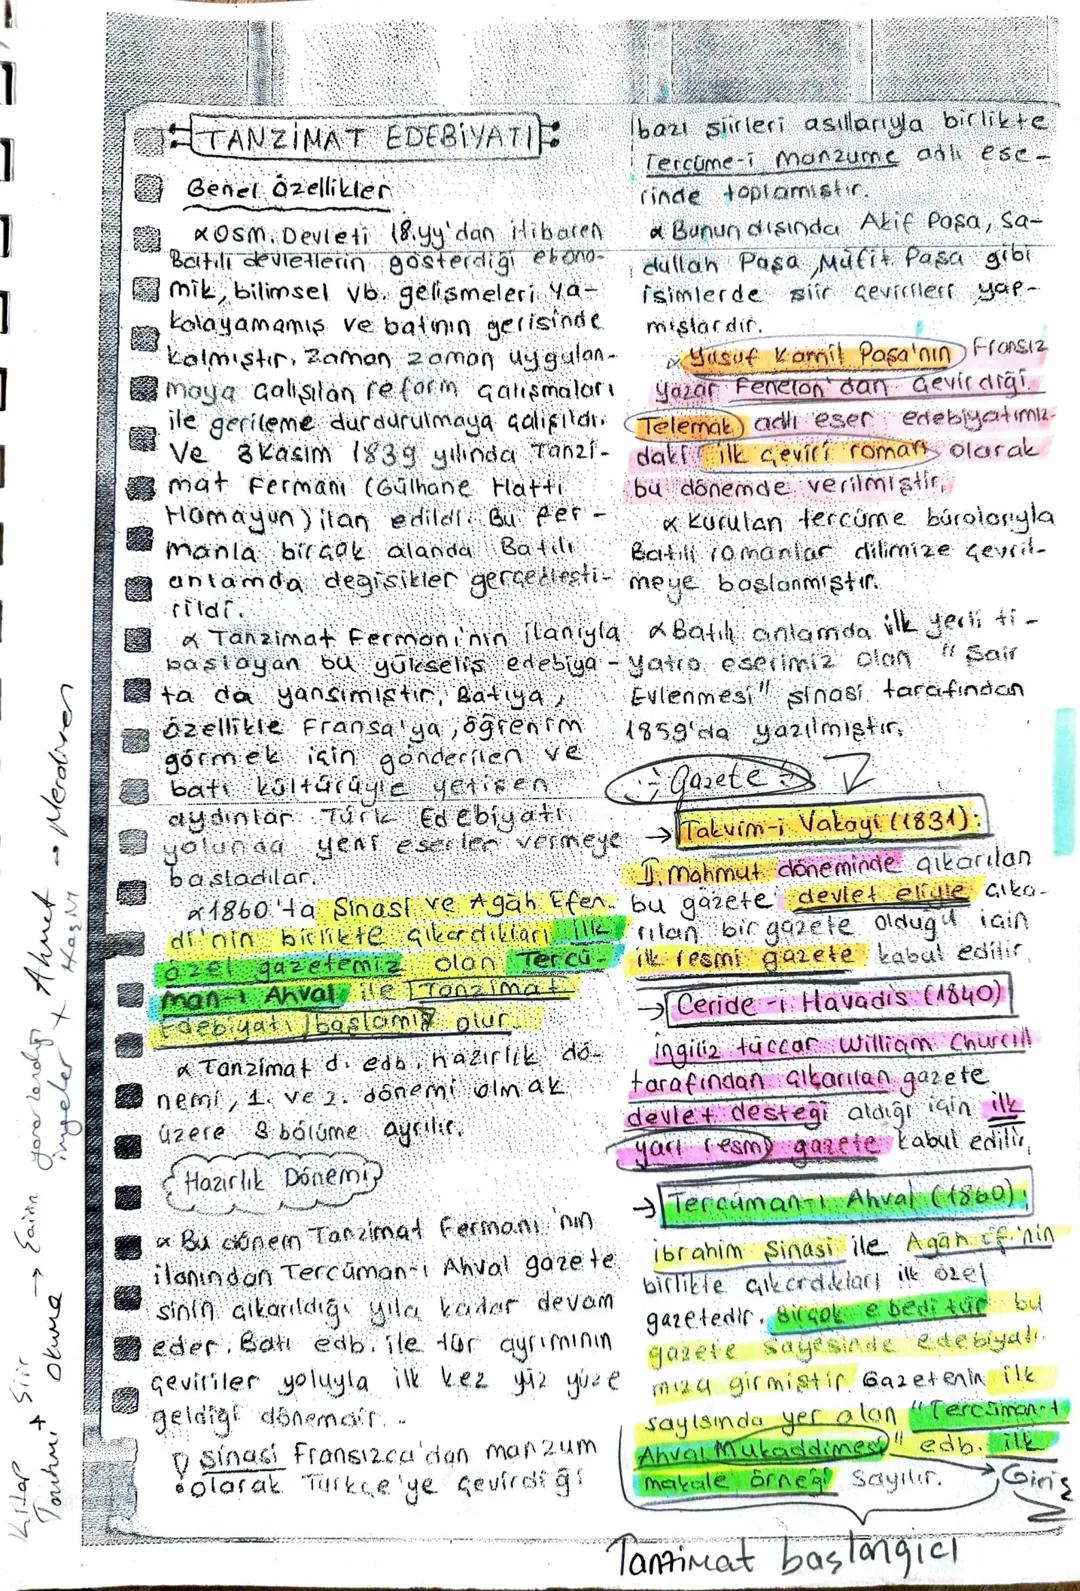 TANZİMAT EDEBİYATI
Genel Özellikler
∝Osm. Devleti 18.yy'dan itibaren
Batılı devletlerin gösterdiği ekono-
mik, bilimsel vb. gelişmeleri ya-
kalayamamış ve batının gerisinde
kalmıştır. Zaman zaman uygulan-
maya çalışılan reform çalışmaları
ile gerileme durdurulmaya çalışıldı.
Ve 3 Kasım 1839 yılında Tanzi-
mat Fermanı (Gülhane Hattı
Hümayun) ilan edildi. Bu fer-
manla birçok alanda Batılı
anlamda değişikler gerçekleşti-
rildi.
∝ Tanzimat Fermanı'nın ilanıyla
başlayan bu yükseliş edebiya-
ta da yansımıştır. Batıya,
özellikle Fransa'ya, öğrenim
görmek için gönderilen ve
batı kültürüyle yetişen
aydınlar Türk Edebiyatı
yolunda yeni eserler vermeye
başladılar.
∝1860'ta Şinasi ve Agâh Efen-
di'nin birlikte çıkardıkları ilk
özel gazetemiz olan Tercü-
man-ı Ahval ile Tanzimat
Edebiyatı başlamış olur
∝ Tanzimat d. edb. hazırlık dö-
nemi, 1. ve 2. dönemi olmak
üzere 3 bölüme ayrılır.
Hazırlık Dönemi
∝ Bu dönem Tanzimat Fermanı'nın
ilanından Tercüman-ı Ahval gazete
sinin çıkarıldığı yıla kadar devam
eder. Batı edb. ile tür ayrımının
çeviriler yoluyla ilk kez yüz yüze
geldiği dönemdir.
Şinasi Fransızca'dan manzum
olarak Türkçe'ye çevirdiği
bazı şiirleri asıllarıyla birlikte
Tercüme-i Manzume adlı ese-
rinde toplamıştır.
∝ Bunun dışında Akif Paşa, Sa-
dullah Paşa, Müfit Paşa gibi
isimlerde şiir çevirileri yap-
mışlardır.
∝ Yusuf Kamil Paşa'nın Fransız
yazar Fenelon'dan çevirdiği
Telemak adlı eser edebiyatımız-
daki ilk çeviri roman olarak
bu dönemde verilmiştir.
∝ Kurulan tercüme bürolarıyla
Batılı romanlar dilimize çevril-
meye başlanmıştır.
∝ Batılı anlamda ilk yerli ti-
yatro eserimiz olan "Şair
Evlenmesi" Şinasi tarafından
1859'da yazılmıştır.
Gazete
→ Takvim-i Vakayi (1831):
II. Mahmut döneminde çıkarılan
bu gazete devlet eliyle çıka-
rılan bir gazete olduğu için
ilk resmi gazete kabul edilir.
→ Ceride-i Havadis (1840)
İngiliz tüccar William Churcill
tarafından çıkarılan gazete
devlet desteği aldığı için ilk
yarı resmi gazete kabul edilir.
→ Tercüman-ı Ahval (1860)
İbrahim Şinasi ile Agâh Ef.'nin
birlikte çıkardıkları ilk özel
gazetedir. Birçok edebi tür bu
gazete sayesinde edebiyatı-
mıza girmiştir. Gazetenin ilk
sayısında yer alan "Tercüman-ı
Ahval Mukaddimesi" edb. ilk
makale örneği sayılır.
Giriş
Tanzimat başlangıcı
Kitap Şiir
Okuma →
Ahmet → Merdiven